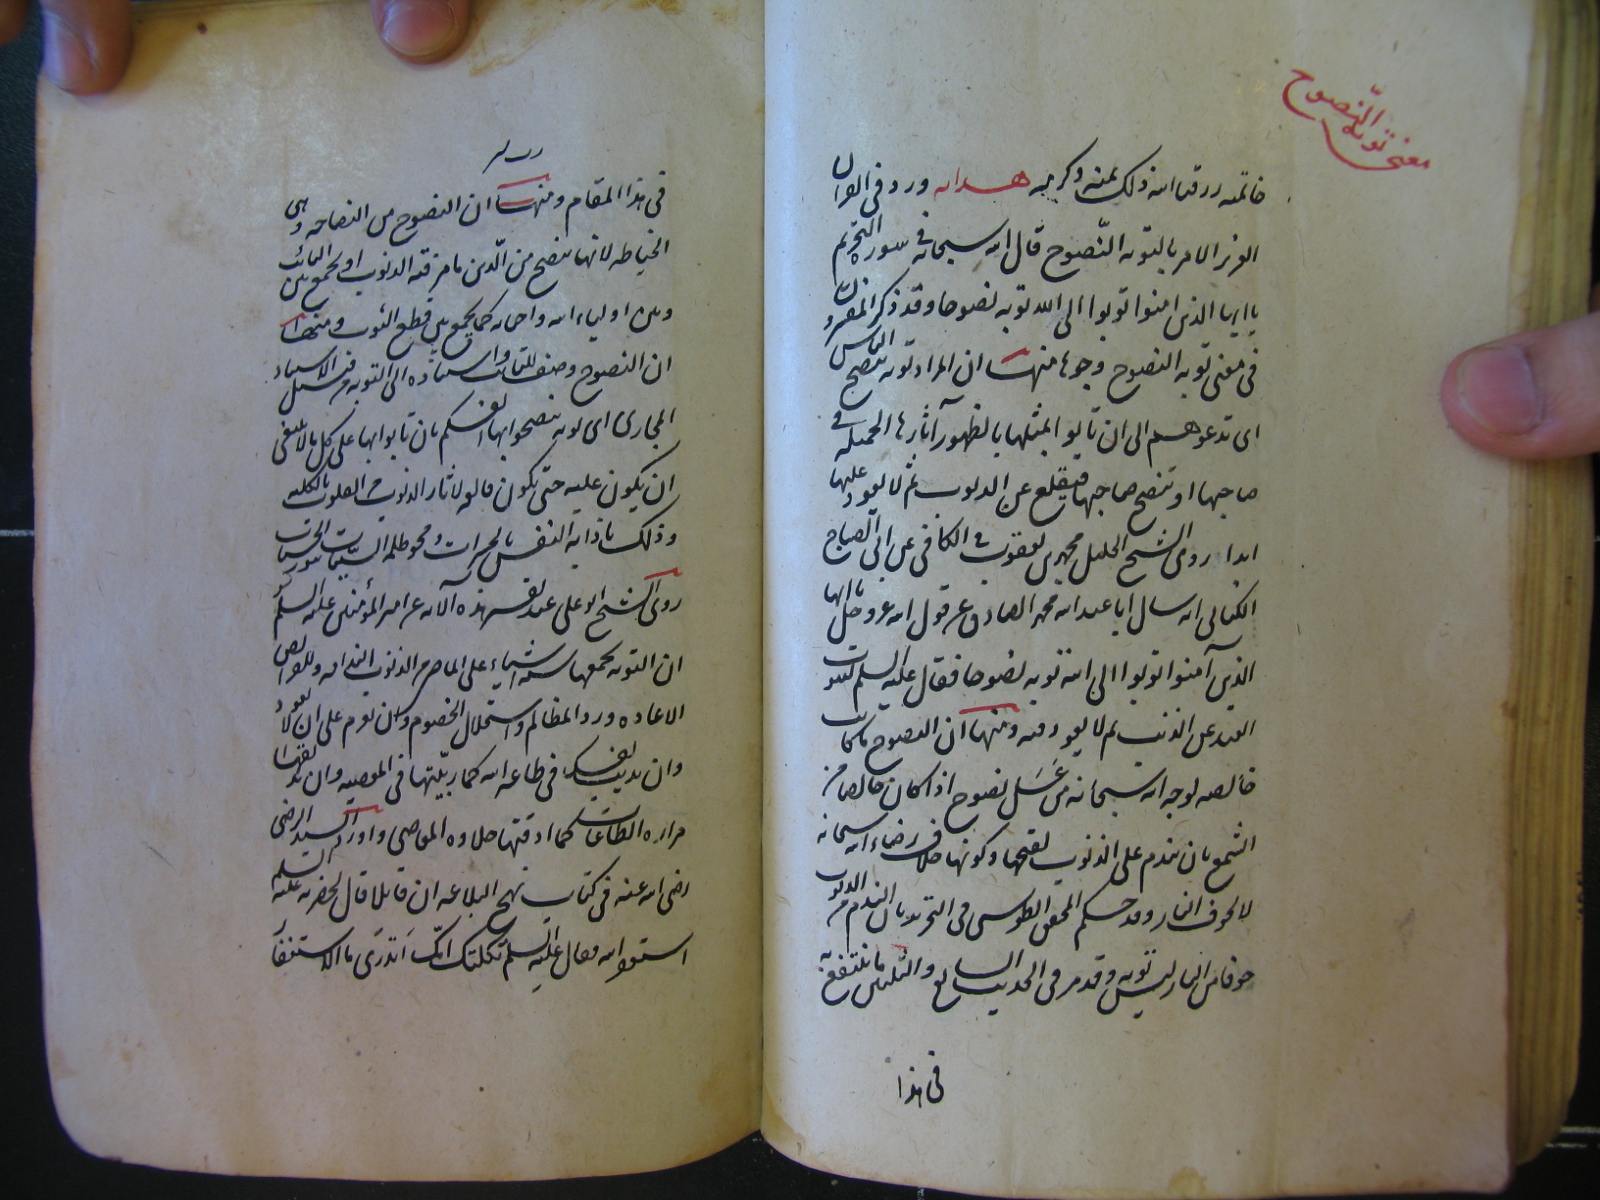 معنى توبة النّصوح
خاتمته رزقنا الله ذلك بمنه وكرمه هدايه ورد فى القرآن
العزيز الامر بالتوبه النّصوح قال الله سبحانه فى سورة التحريم
يا ايها الذين امنوا توبوا الى الله توبه نصوحا وقد ذكر المفسرون
فى معنى توبه النصوح وجوها منها ان المراد توبه تنصح الناس
اى تدعوهم الى ان تأتوا بمثلها بالظهور آثارها الجميله فى
صاحبها او تنصح صاحبها فيقلع عن الذنوب ثم لا يعود عليها
ابدا روى الشيخ الجليل محمد بن يعقوب فى الكافى عن ابى الصباح
الكنانى انه سال ابا عبد الله محمد الصادق عن قول الله عز وجل يا ايها
الذين آمنوا توبوا الى الله توبه نصوحا فقال عليه السلم يتوب
العبد عن الذنب ثم لا يعود فيه ومنها ان النصوح ما كانت
خالصه لوجه الله سبحانه من عَسَل نصوح اذا كان خالصا من
الشمع بان يندم على الذنوب لقبحها وكونها خلاف رضاء الله سبحانه
لا لخوف النار وقد حكم المحقق الطوسى فى التجريد بان الندم من الذنوب
خوفا من النار ليس توبه وقد مر فى الحديث السابع والثلثين ما ينتفع به
فى هذا
فى هذا المقام ومنها ان النصوح من النصاحه وهى
الخياطه لانها تنصح من الدّين ما مزقته الذنوب او تجمع بين التائب
وبين اولياء الله واحبائه كما يجمع بين قطع الثوب ومنها
ان النصوح وصف للتائب واسناده الى التوبه من قبيل الاسناد
المجازى اى توبه تنصحوا بها انفسكم بان تاتوا بها على كل ما لا ينبغى
ان يكون عليه حتى يكون قالعه لاثار الذنوب من القلوب بالكليه
وذلك باذابه النفس بالحسرات ومحو ظلمه السيئات بنور الحسنات
روى الشيخ ابو على عند تفسير هذه الآيه عن امير المؤمنين عليه السلم
ان التوبه يجمعها سته اشياء على الماضى من الذنوب الندامه وللفرائض
الاعاده ورد المظالم واستحلال الخصوم وان تعزم على ان لا تعود
وان تذيب نفسك فى طاعه الله كما ربّيتها فى المعصيه وان تذيقها
مراره الطاعات كما اذقتها حلاوه المعاصى واورد السيد الرضى
رضى الله عنه فى كتاب نهج البلاغه ان قائلا قال بحضرته عليه السلم
استغفر الله فقال عليه السلم ثكلتك امّك أتدرى ما الاستغفار